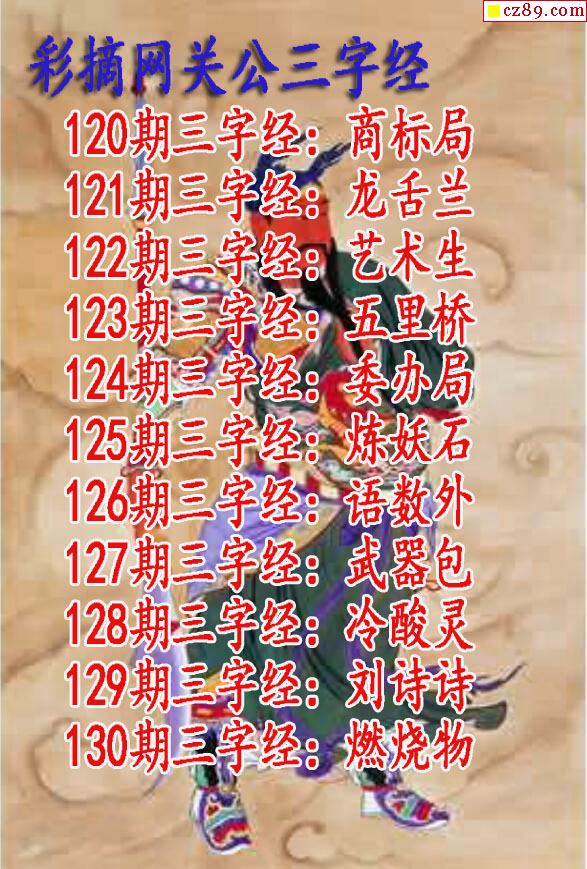 cz89.com
彩摘网关公三字经
120期三字经：商标局
121期三字经：龙舌兰
122期三字经：艺术生
123期三字经：五里桥
124期三字经：委办局
125期三字经：炼妖石
126期三字经：语数外
127期三字经：武器包
128期三字经：冷酸灵
129期三字经：刘诗诗
130期三字经：燃烧物